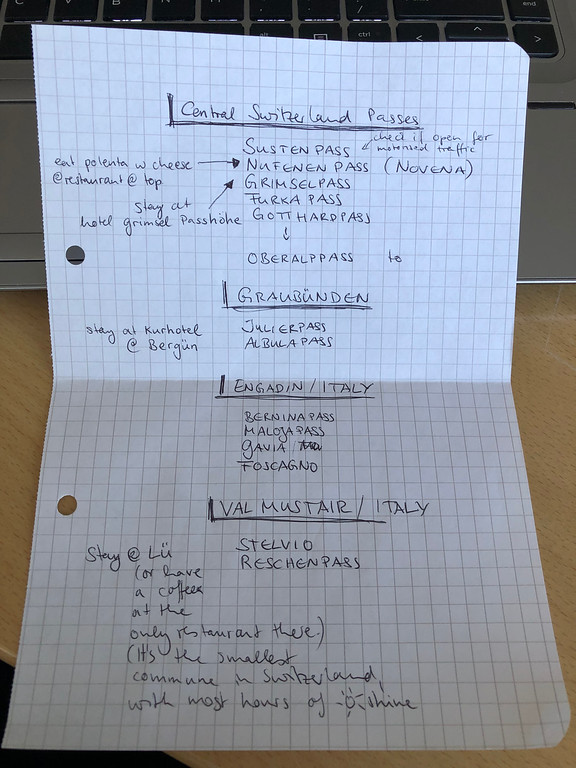 end
alt
ctrl
Central Switzerland Passes
SUSTENPASS
check if open for
motorised traffic
eat polenta w cheese
@restaurant@top
NUFENEN PASS (NOVENA)
GRIMSELPASS
Stay at
hotel grimsel Passhöhe
FURKA PASS
GOTTHARDPASS
↓
OBERALPPASS to
GRAUBÜNDEN
stay at Kurhotel
@ Bergün
JULIERPASS
ALBULAPASS
ENGADIN / ITALY
BERNINAPASS
MALOJAPASS
GAVIA
FOSCAGNO
VAL MUSTAIR / ITALY
STELVIO
RESCHENPASS
Stay @ Lü
(or have
a coffee
at the
only restaurant there.)
(It's the smallest
commune in Switzerland,
with most hours of shine